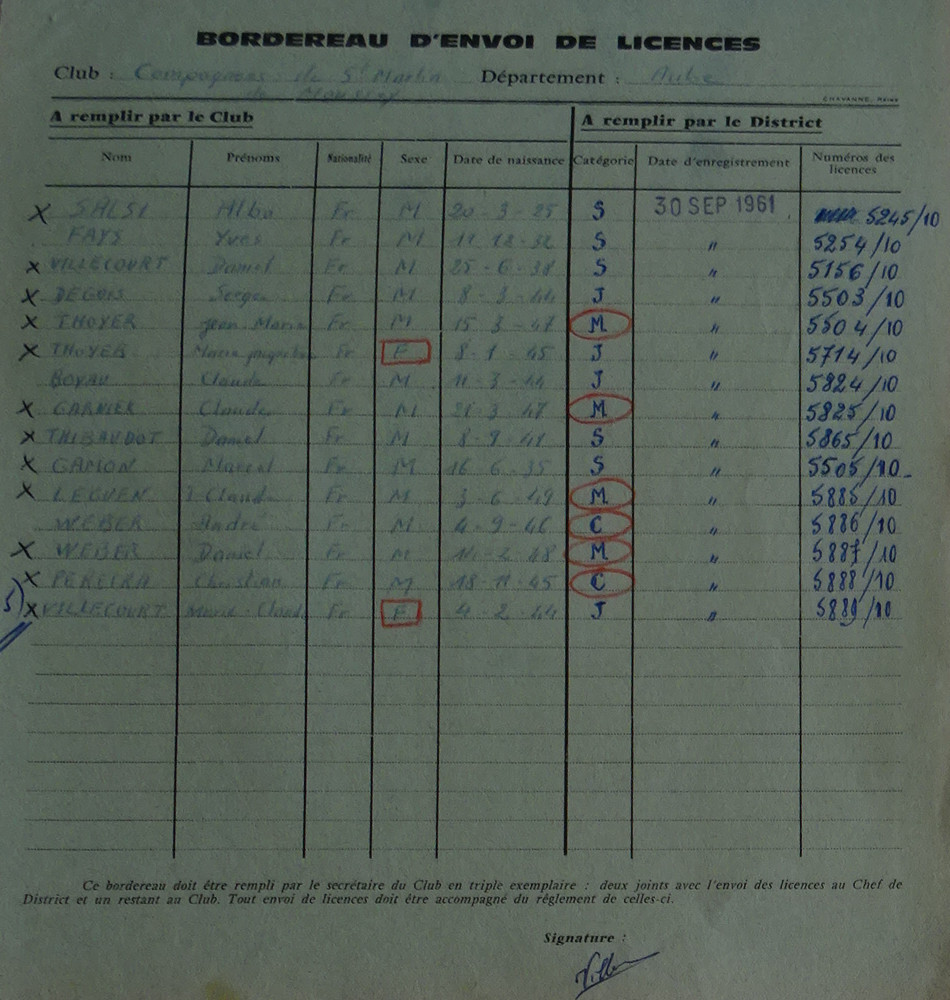 BORDEREAU D'ENVOI DE LICENCES
Club : Compagnons de St Martin Département : Aube
de
CHAVANNE, REIMS
A remplir par le Club A remplir par le District
Nom Prénoms Nationalité Sexe Date de naissance Catégorie Date d'enregistrement Numéros des licences
X SALSI Alba Fr M 20 - 3 - 25 S 30 SEP 1961 5245/10
FAYS Yves Fr M 11 - 12 - 32 S " 5254/10
X VILLECOURT Daniel Fr M 25 - 6 - 38 S " 5156/10
X DEGOIS Serge Fr M 8 - 3 - 44 J " 5503/10
X THOYER Jean Marie Fr M 15 3 - 47 M " 5504/10
X THOYER Marie Fr F 8 - 1 - 45 J " 5714/10
BOYAU Claude Fr M 11 - 3 - 44 J " 5824/10
X GARNIER Claude Fr M 21 3 47 M " 5825/10
X THIBAUDOT Daniel Fr M 8 - 9 - 41 S " 5865/10
X GAMON Marcel Fr M 16 6 - 35 S " 5505/10
X LEGUEN J Claude Fr M 3 - 6 - 49 M " 5885/10
WEBER André Fr M 4 - 9 - 46 C " 5886/10
X WEBER Daniel Fr M 2 - 48 M " 5887/10
X PEREIRA Christian Fr M 18 - 11 - 45 C " 5888/10
5) X VILLECOURT Marie - Claude Fr F 4 - 2 - 44 J " 5889/10
Ce bordereau doit être rempli par le secrétaire du Club en triple exemplaire : deux joints avec l'envoi des licences au Chef de
District et un restant au Club. Tout envoi de licences doit être accompagné du règlement de celles-ci.
Signature :